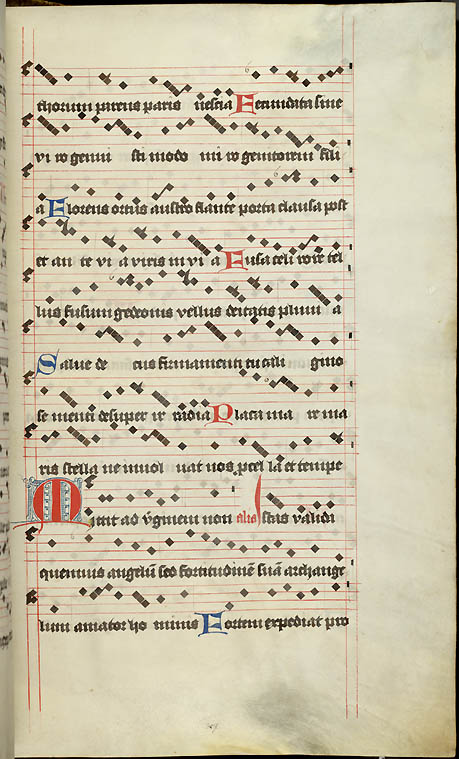 thorum parens paris nescia Fecundata sine
viro genuisti modo miro genitorem fili
a Florens ortus austro flante porta clausa post
et ante via viris invia Fusa celi rore tel
lus fusum gedeonis vellus deitatis pluvia
Salve decus firmamenti tu cali gino
se menti desuper irradia Placa mare ma
ris stella ne involvat nos pcella et tempe
Mittit ad v̄ginem non alia stas validi
quemvis angelū sed fortitudinē suā archange
lum amator hominis Fortem expediat pro